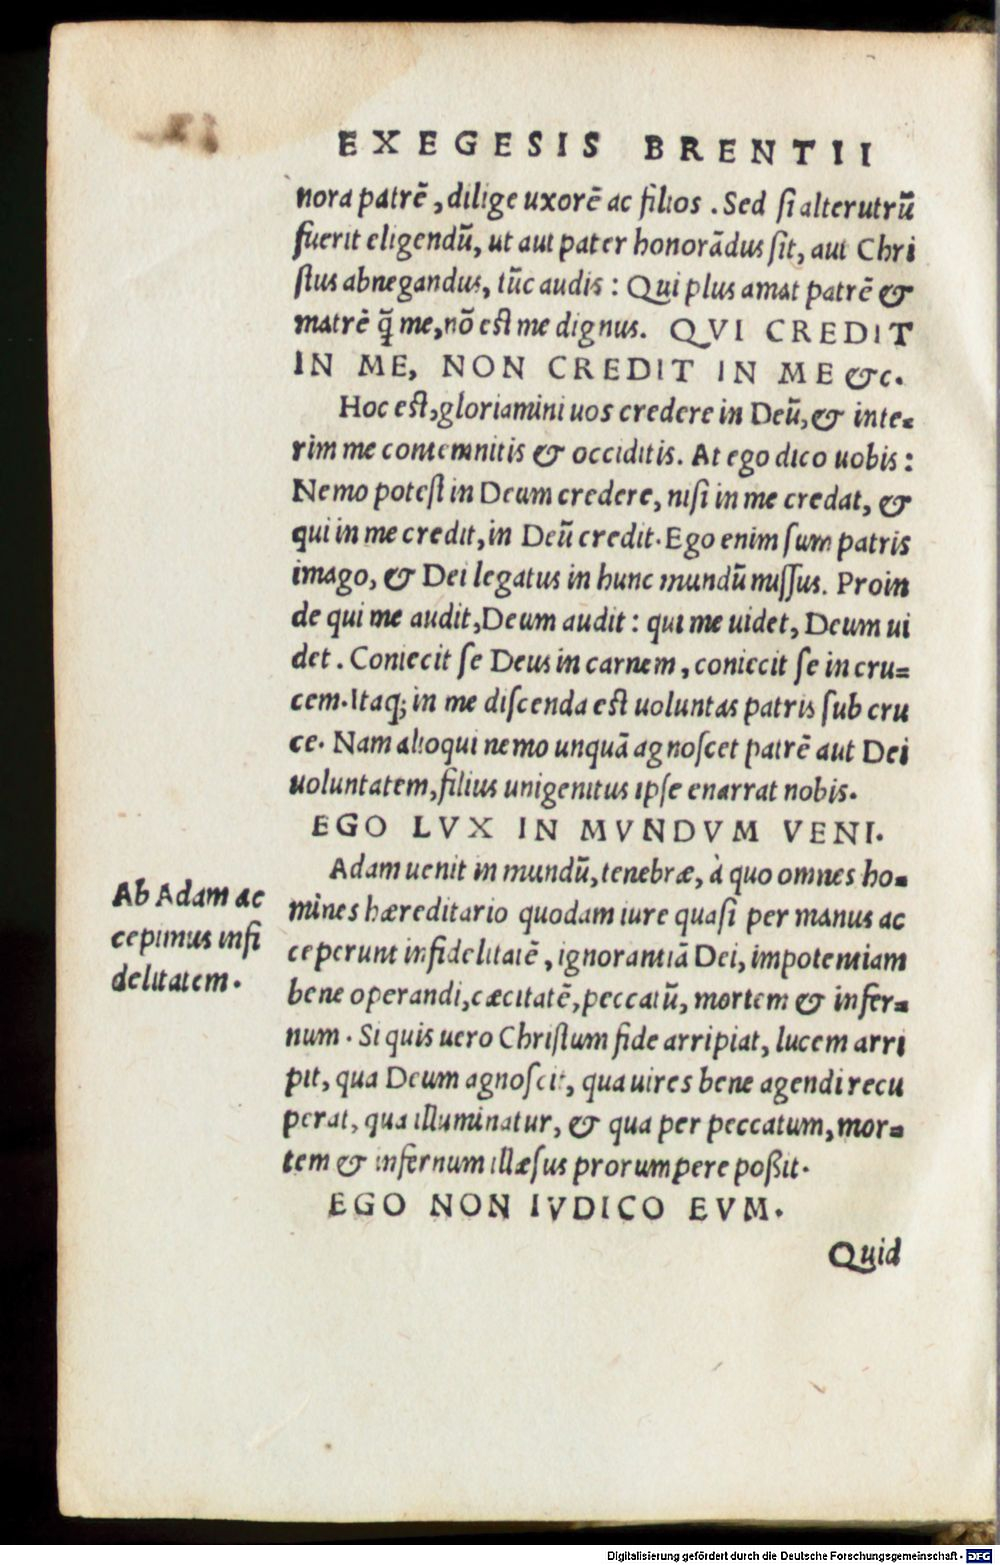 EXEGESIS BRENTII
nora patrẽ, dilige uxorẽ ac filios. Sed ſi alterutrũ
fuerit eligendũ, ut aut pater honorãdus ſit, aut Chri
ſtus abnegandus, tũc audis: Qui plus amat patrẽ &
matrẽ q̃ me, nõ eſt me dignus. QVI CREDIT
IN ME, NON CREDIT IN ME &c.
Hoc eſt, gloriamini uos credere in Deũ, & inte-
rim me contemnitis & occiditis. At ego dico uobis:
Nemo poteſt in Deum credere, niſi in me credat, &
qui in me credit, in Deũ credit. Ego enim ſum patris
imago, & Dei legatus in hunc mundũ miſſus. Proin
de qui me audit, Deum audit: qui me uidet, Deum ui
det. Coniecit ſe Deus in carnem, coniecit ſe in cru-
cem. Itaq; in me diſcenda eſt uoluntas patris ſub cru
ce. Nam alioqui nemo unquã agnoſcet patrẽ aut Dei
uoluntatem, filius unigenitus ipſe enarrat nobis.
EGO LVX IN MVNDVM VENI.
Adam uenit in mundũ, tenebræ, à quo omnes ho-
mines hæreditario quodam iure quaſi per manus ac
ceperunt infidelitatẽ, ignorantiã Dei, impotentiam
bene operandi, cæcitatẽ, peccatũ, mortem & infer-
num. Si quis uero Chriſtum fide arripiat, lucem arri
pit, qua Deum agnoſcit, qua uires bene agendi recu
perat, qua illuminatur, & qua per peccatum, mor-
tem & infernum illæſus prorumpere poßit.
EGO NON IVDICO EVM.
Quid
Ab Adam ac
cepimus infi
delitatem.
Digitalisierung gefördert durch die Deutsche Forschungsgemeinschaft - DFG